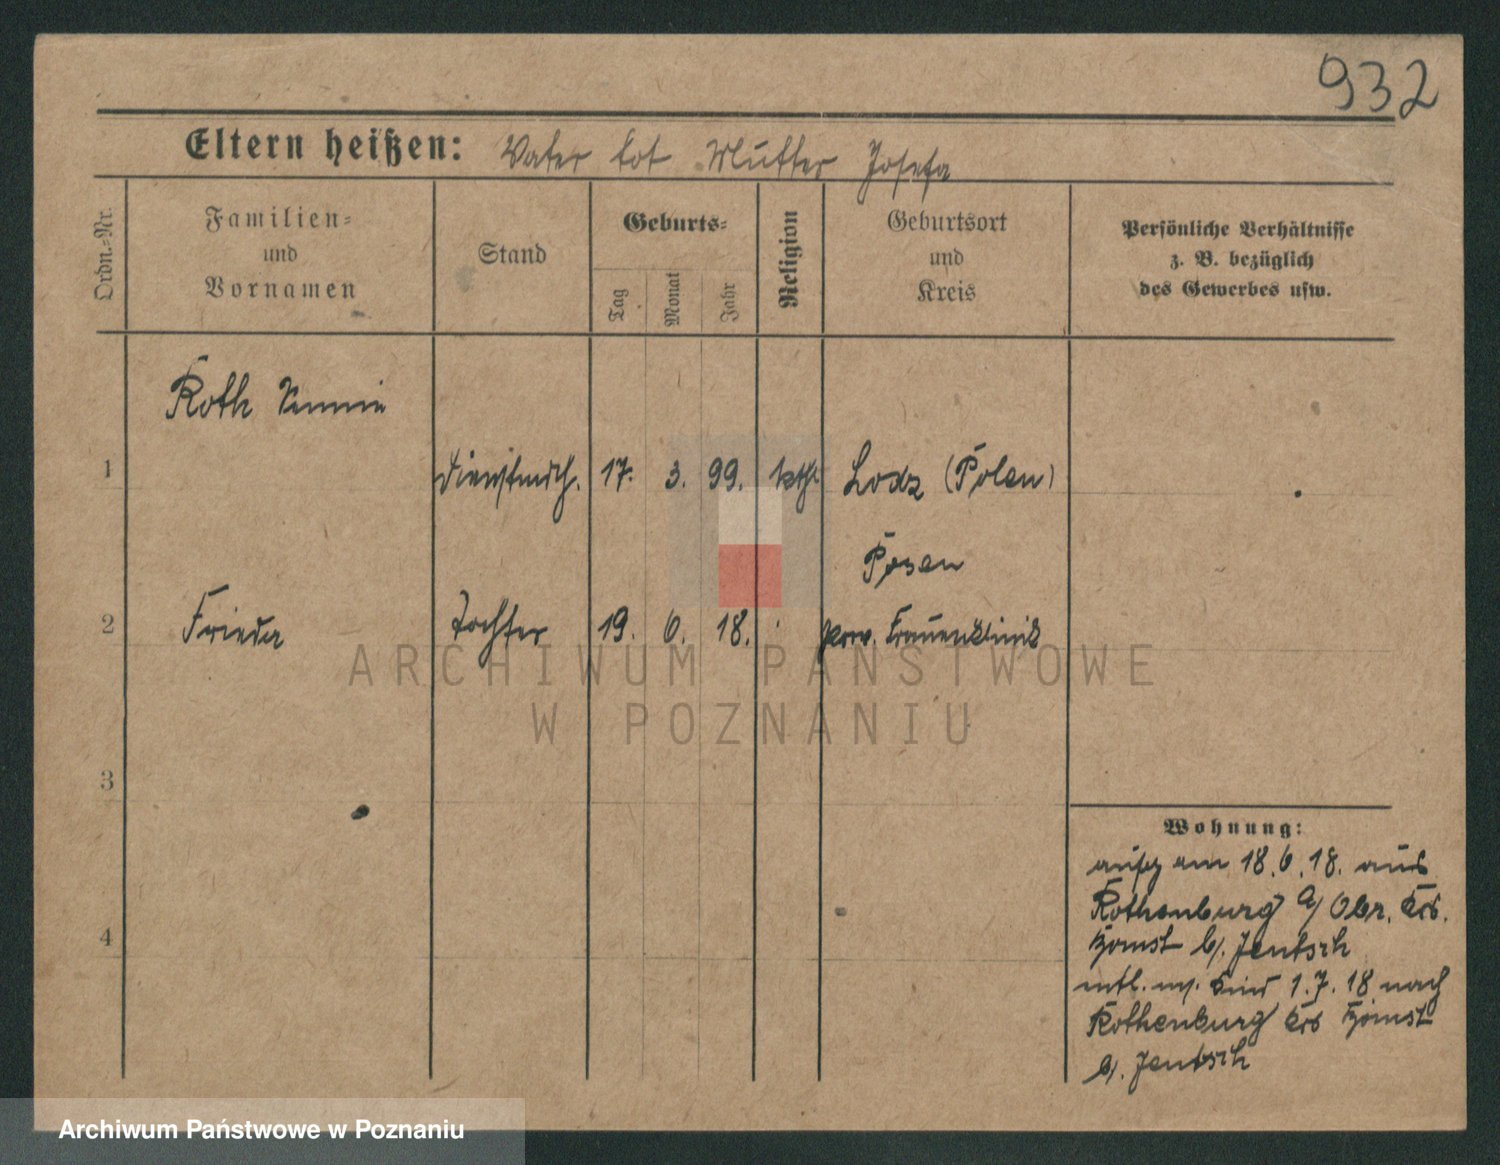 932
Eltern heißen: Vater tot Mutter Josefa
Ordn.=Nr.
Familien=
und
Vornamen
Stand
Geburts=
Tag
Monat
Jahr
Religion
Geburtsort
und
Kreis
Persönliche Verhältnisse
z. B. bezüglich
des Gewerbes usw.
Roth
1 Dienstmdch. 17. 3. 99. kth. Lodz (Polen)
Posen
2 Frieda Tochter 19. 6. 18. prov. Frauenklinik
3
4
Wohnung:
am 18.6.18. aus
Rothenburg a/ Obr. Krs.
Bomst b/. Jentsch
entl. m/. Kind 1.7.18 nach
Rothenburg Krs Bomst
b/. Jentsch
ARCHIWUM PAŃSTWOWE
W POZNANIU
Archiwum Państwowe w Poznaniu